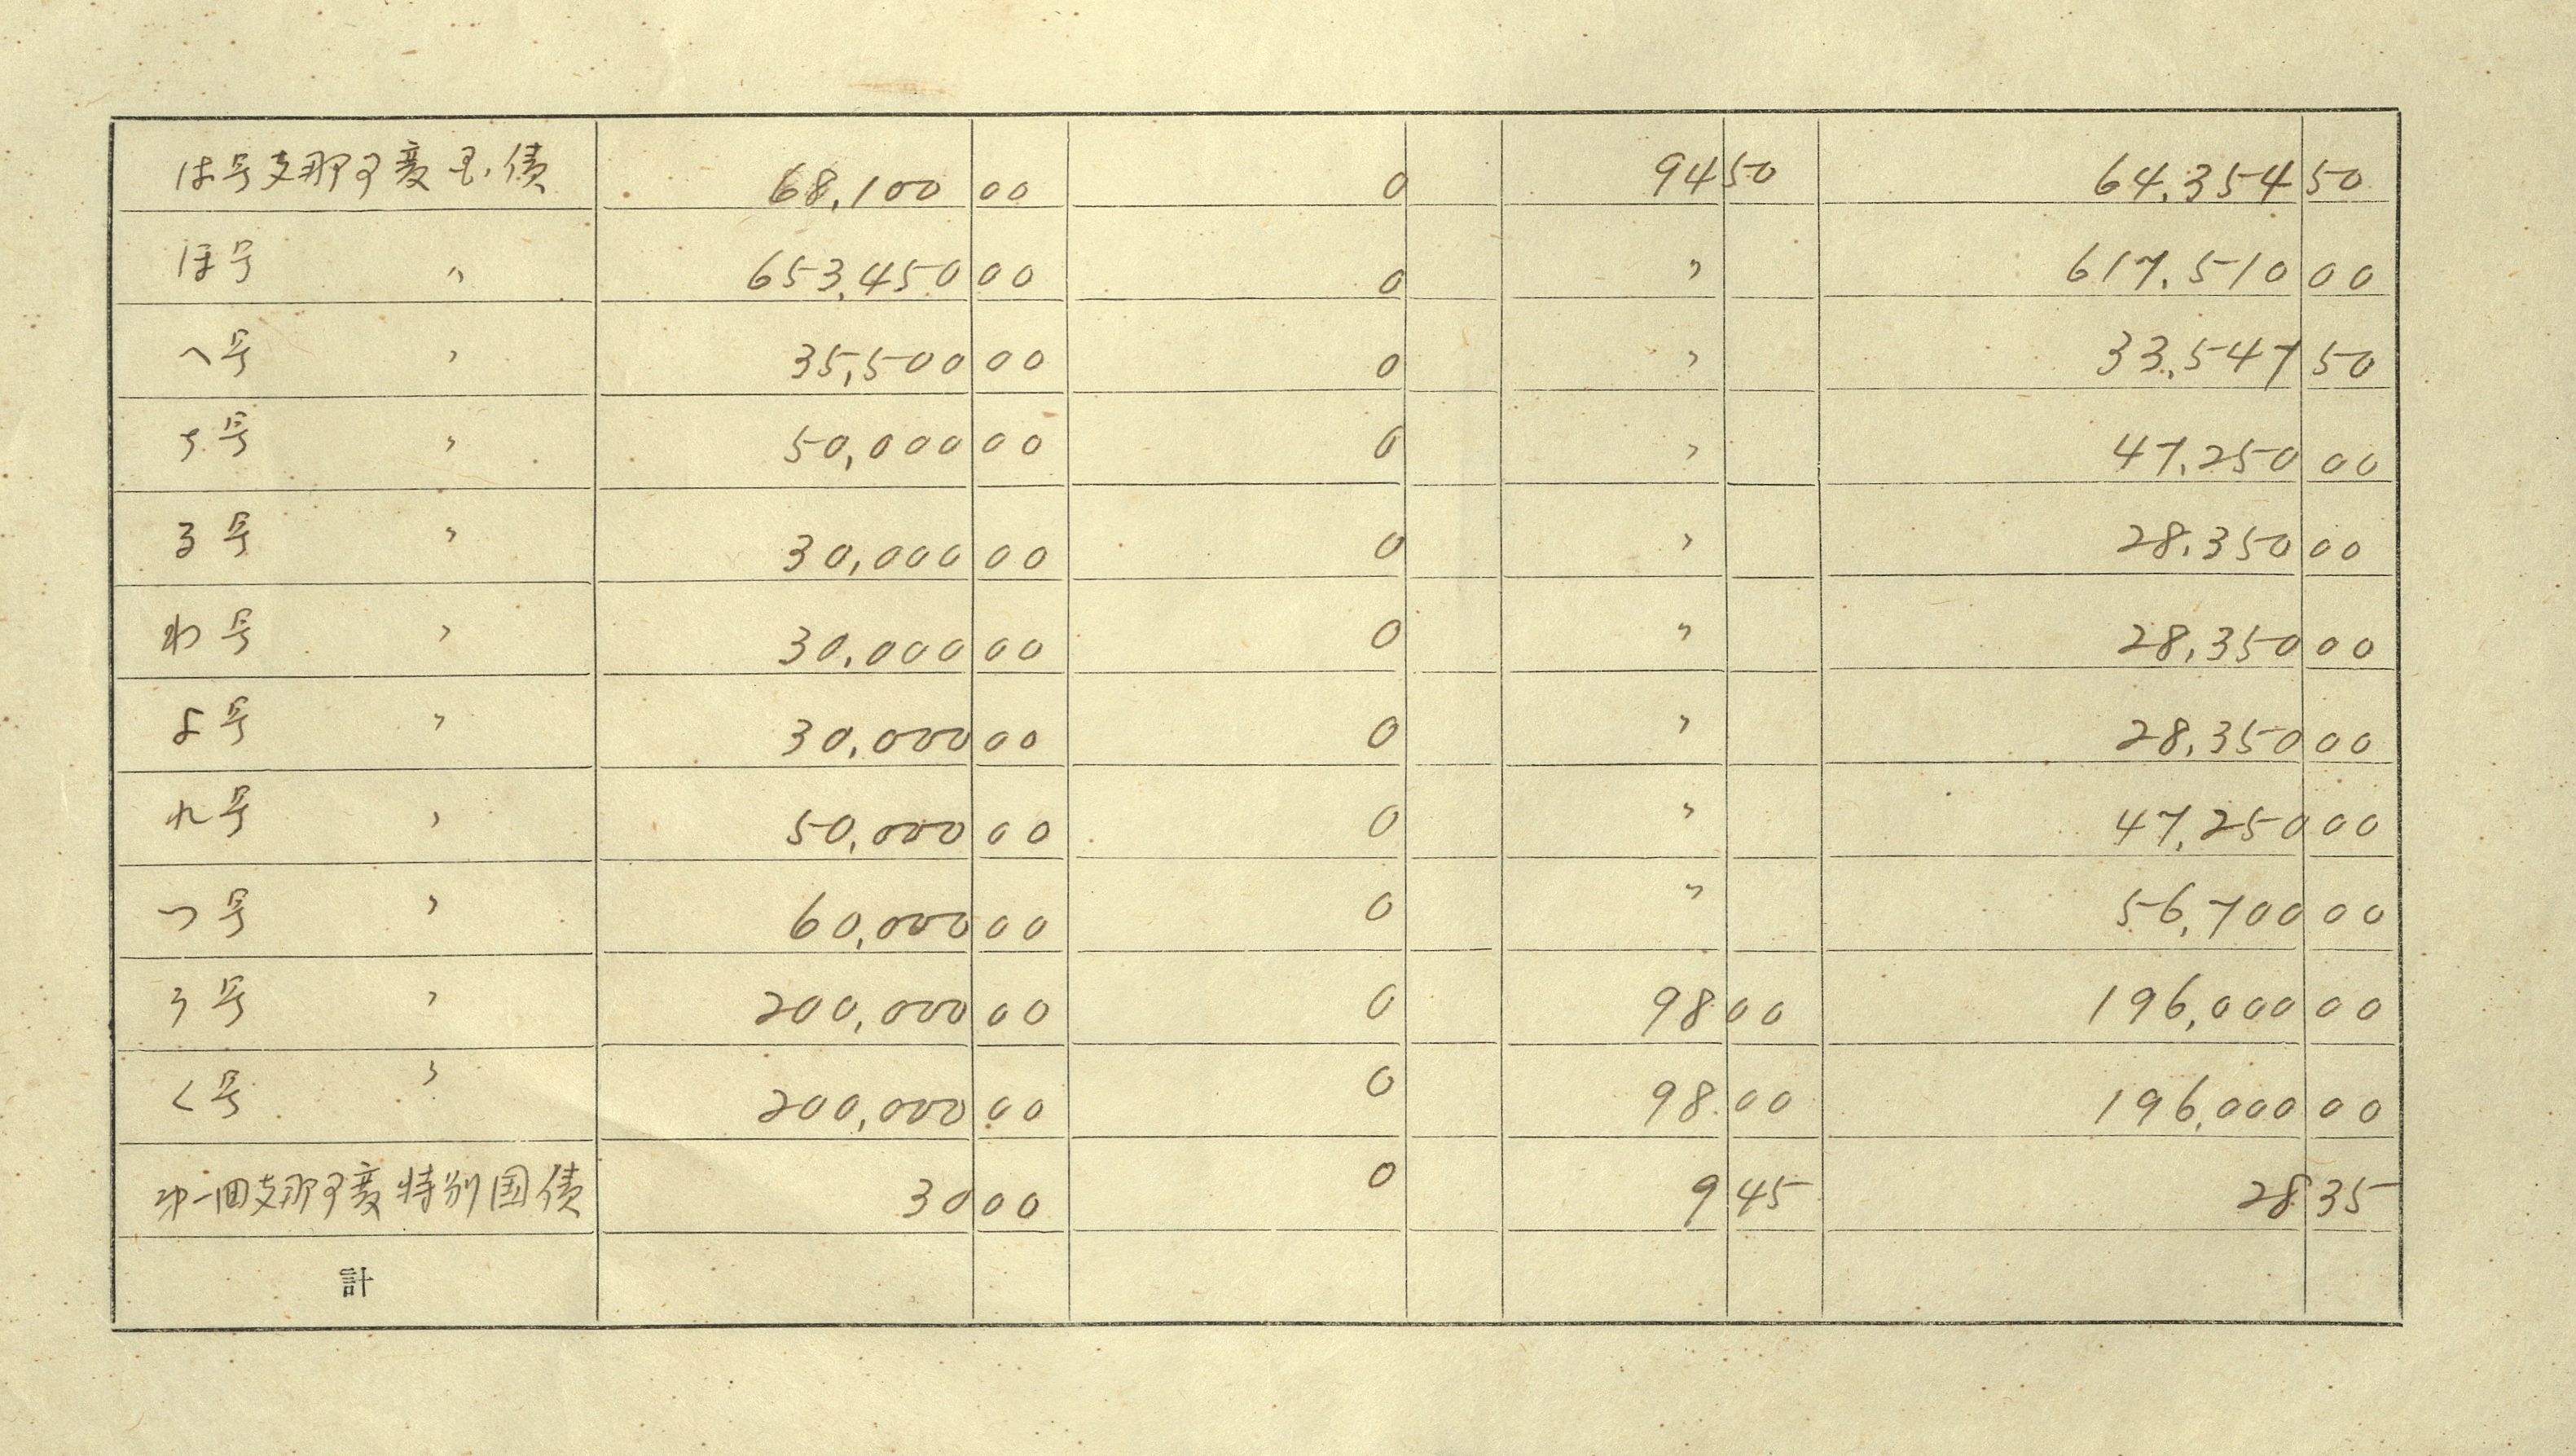 は号支那事変国債 68,100 00 0 94 50 64,354 50
ほ号 〃 653,450 00 0 〃 617,510 00
へ号 〃 35,500 00 0 〃 33,547 50
ち号 〃 50,000 00 0 〃 47,250 00
る号 〃 30,000 00 0 〃 28,350 00
わ号 〃 30,000 00 0 〃 28,350 00
よ号 〃 30,000 00 0 〃 28,350 00
れ号 〃 50,000 00 0 〃 47,250 00
つ号 〃 60,000 00 0 〃 56,700 00
う号 〃 200,000 00 0 98 00 196,000 00
く号 〃 200,000 00 0 98 00 196,000 00
第一回支那事変特別国債 30 00 0 9 45 28 35
計